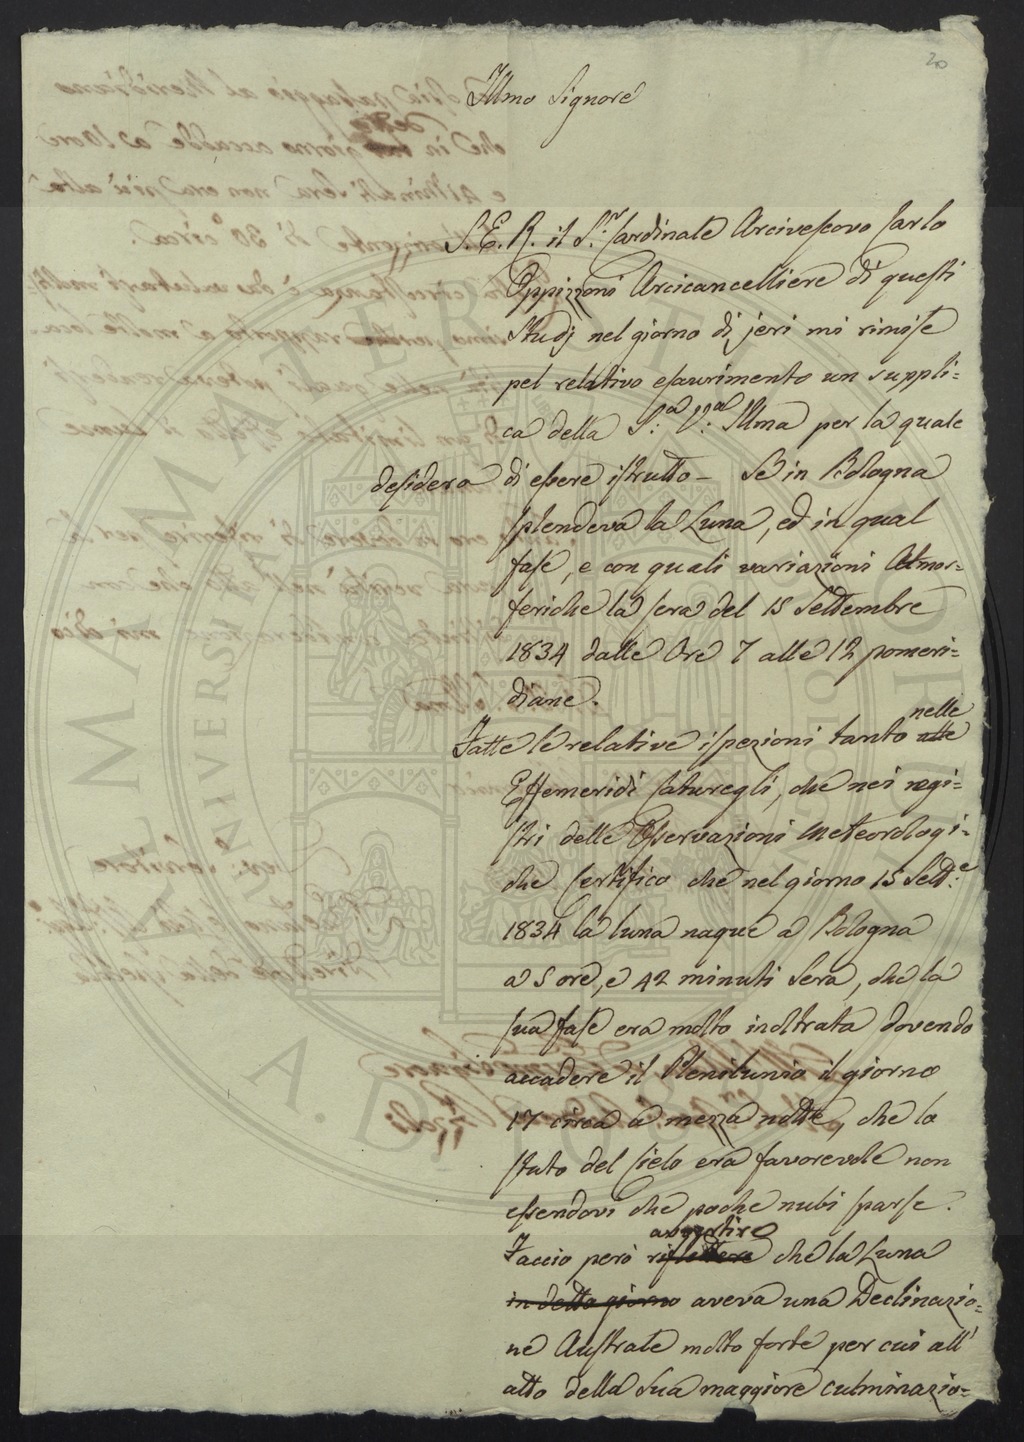 20
Illmo Signore
S. E. R. il S.r Cardinale Arcivescovo Carlo
Oppizzoni Arcicancelliere di questi
Studj nel giorno di jeri mi rimise
pel relativo esaurimento un suppli=
ca della S.a V.a Illma per la quale
desidera di essere istrutto – Se in Bologna
splendeva la Luna, ed in qual
fase, e con quali variazioni Atmos=
feriche la sera del 15 Settembre
1834 dalle Ore 7 alle 12 pomeri=
diane.
nelle
Fatte le relative ispezioni tanto
Effemeridi Caturegli, che nei regi=
stri delle Osservazioni Meteorologi=
che Certifico che nel giorno 15 Sett.e
1834 la luna naque a Bologna
a 5 ore, e 42 minuti Sera, che la
sua fase era molto inoltrata dovendo
accadere il Plenilunio il giorno
17 circa a mezza notte, che lo
stato del Cielo era favorevole non
essendovi che poche nubi sparse.
avvertire
Faccio però riflettere che la Luna
in detto giorno aveva una Declinazio=
ne Australe molto forte per cui all'
atto della Sua maggiore culminazio=
ALMA MATER STUDIORUM
UNIVERSITÀ DI BOLOGNA
A.D. 1088